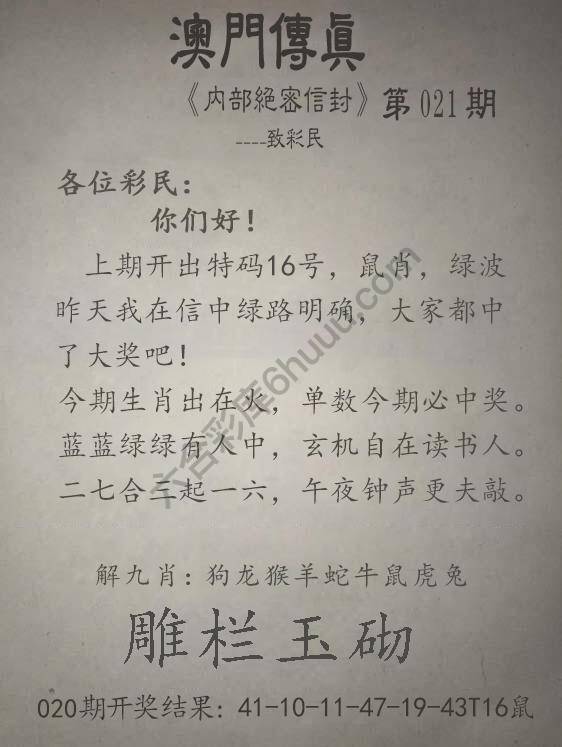 澳門傳真
《内部絕密信封》第021期
----致彩民
各位彩民：
你们好！
上期开出特码16号，鼠肖，绿波
昨天我在信中绿路明确，大家都中
了大奖吧！
今期生肖出在火，单数今期必中奖。
蓝蓝绿绿有人中，玄机自在读书人。
二七合三起一六，午夜钟声更夫敲。
解九肖：狗龙猴羊蛇牛鼠虎兔
雕栏玉砌
020期开奖结果：41-10-11-47-19-43T16鼠
六合彩库6huuu.com